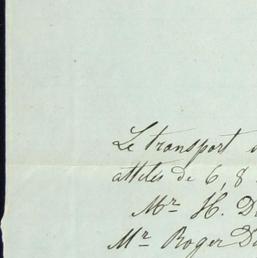 Le transport
attelés de 6, 8
Mr H.
Mr Roger